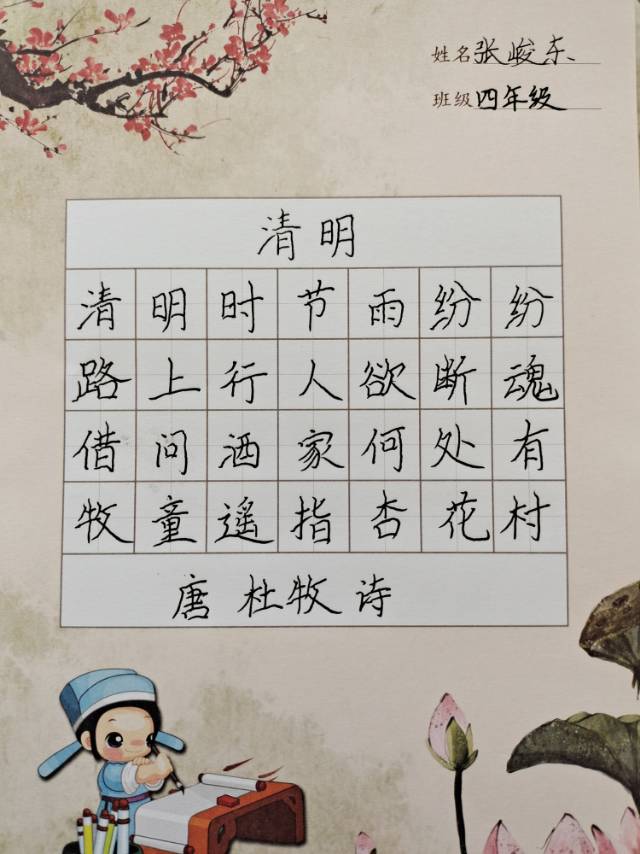 姓名 张峻东
班级 四年级
清明
清明时节雨纷纷
路上行人欲断魂
借问洒家何处有
牧童遥指杏花村
唐 杜牧 诗